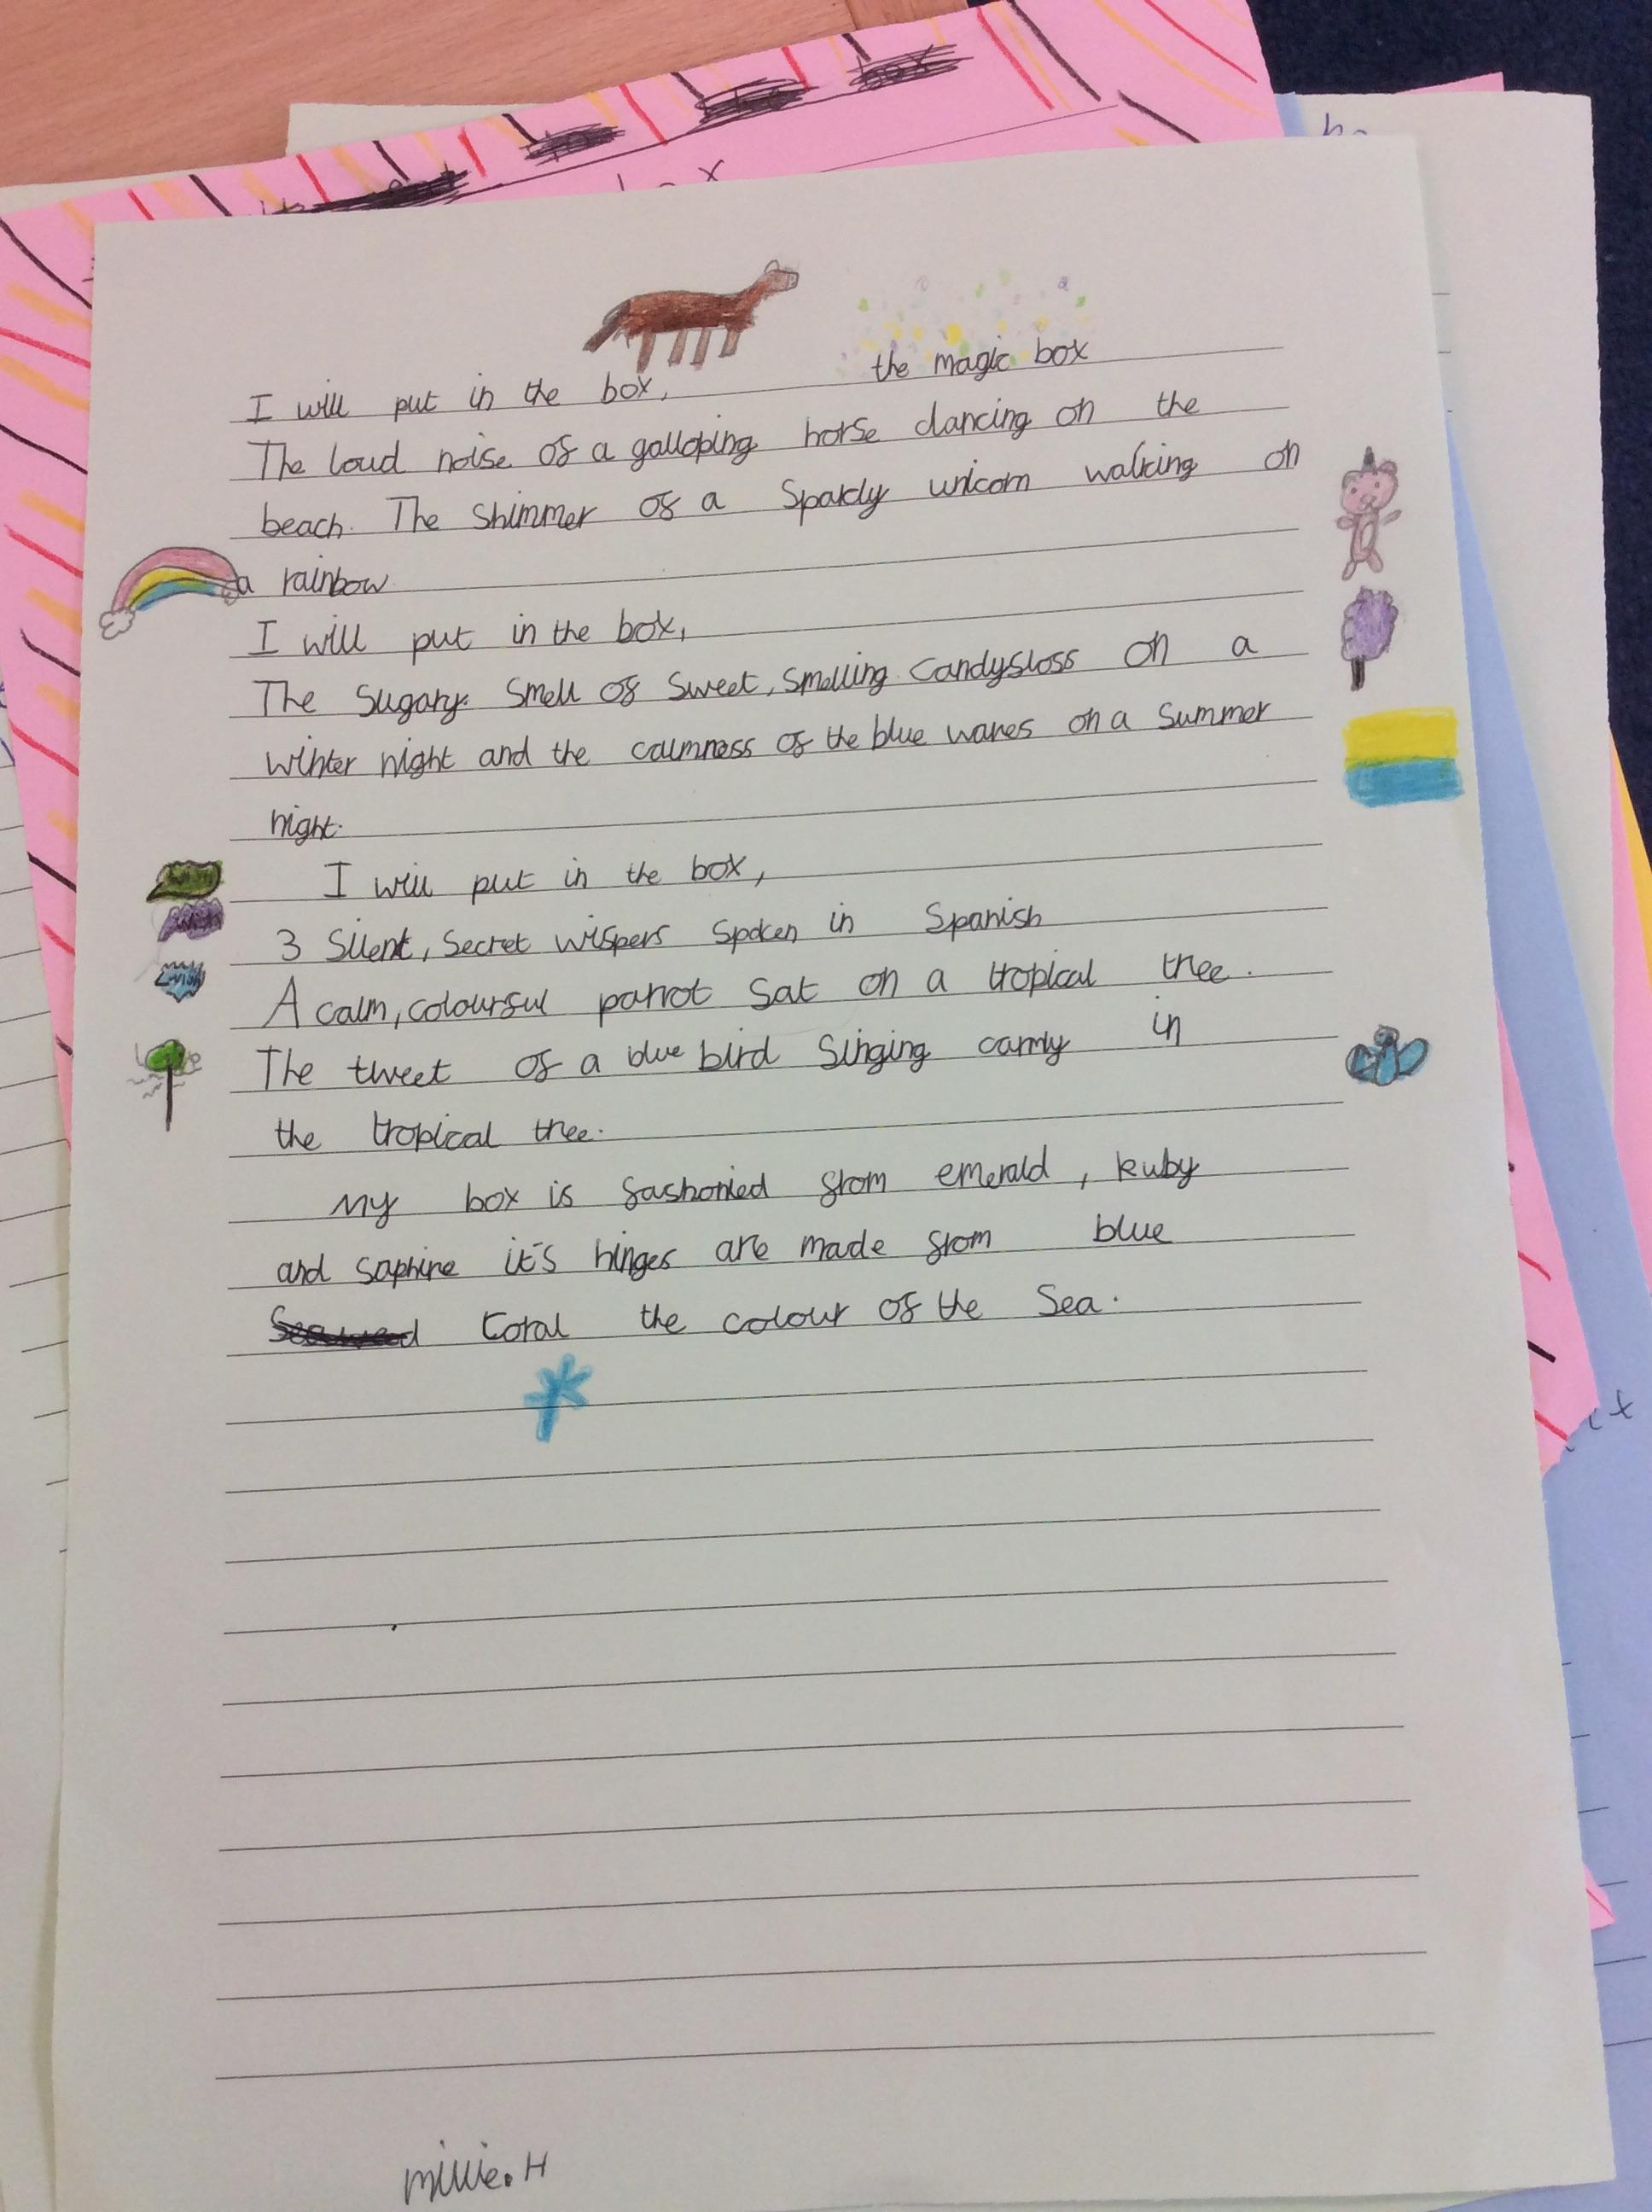 the magic box
I will put in the box,
The loud noise of a galloping horse dancing on the
beach. The shimmer of a sparkly unicorn walking on
a rainbow
I will put in the box,
The sugary smell of sweet, smelling candyfloss on a
winter night and the calmness of the blue waves on a summer
night.
I will put in the box,
3 silent, secret wispers spoken in Spanish
A calm, colourful parrot sat on a tropical tree.
The tweet of a blue bird singing camly in
the tropical tree.
My box is fashonied from emerald, ruby
and saphire it's hinges are made from blue
coral the colour of the sea.
millie.H